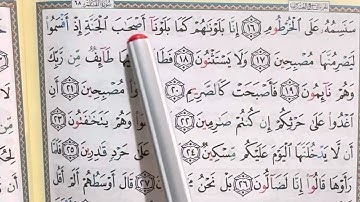 سَنَسِمُهُۥ عَلَى ٱلْخُرْطُومِ ١٦ إِنَّا بَلَوْنَٰهُمْ كَمَا بَلَوْنَآ أَصْحَٰبَ ٱلْجَنَّةِ إِذْ أَقْسَمُوا۟
لَيَصْرِمُنَّهَا مُصْبِحِينَ ١٧ وَلَا يَسْتَثْنُونَ ١٨ فَطَافَ عَلَيْهَا طَآئِفٌ مِّن رَّبِّكَ
وَهُمْ نَآئِمُونَ ١٩ فَأَصْبَحَتْ كَٱلصَّرِيمِ ٢٠ مُصْبِحِينَ ٢١
ٱغْدُوا۟ عَلَىٰ حَرْثِكُمْ إِن كُنتُمْ صَٰرِمِينَ ٢٢ وَهُمْ يَتَخَٰفَتُونَ ٢٣
أَن لَّا يَدْخُلَنَّهَا ٱلْيَوْمَ عَلَيْكُم مِّسْكِينٌ ٢٤ عَلَىٰ حَرْدٍ قَٰدِرِينَ ٢٥
رَأَوْهَا قَالُوٓا۟ إِنَّا لَضَآلُّونَ ٢٦ بَلْ نَحْنُ ٢٧ قَالَ أَوْسَطُهُمْ أَلَمْ أَقُل